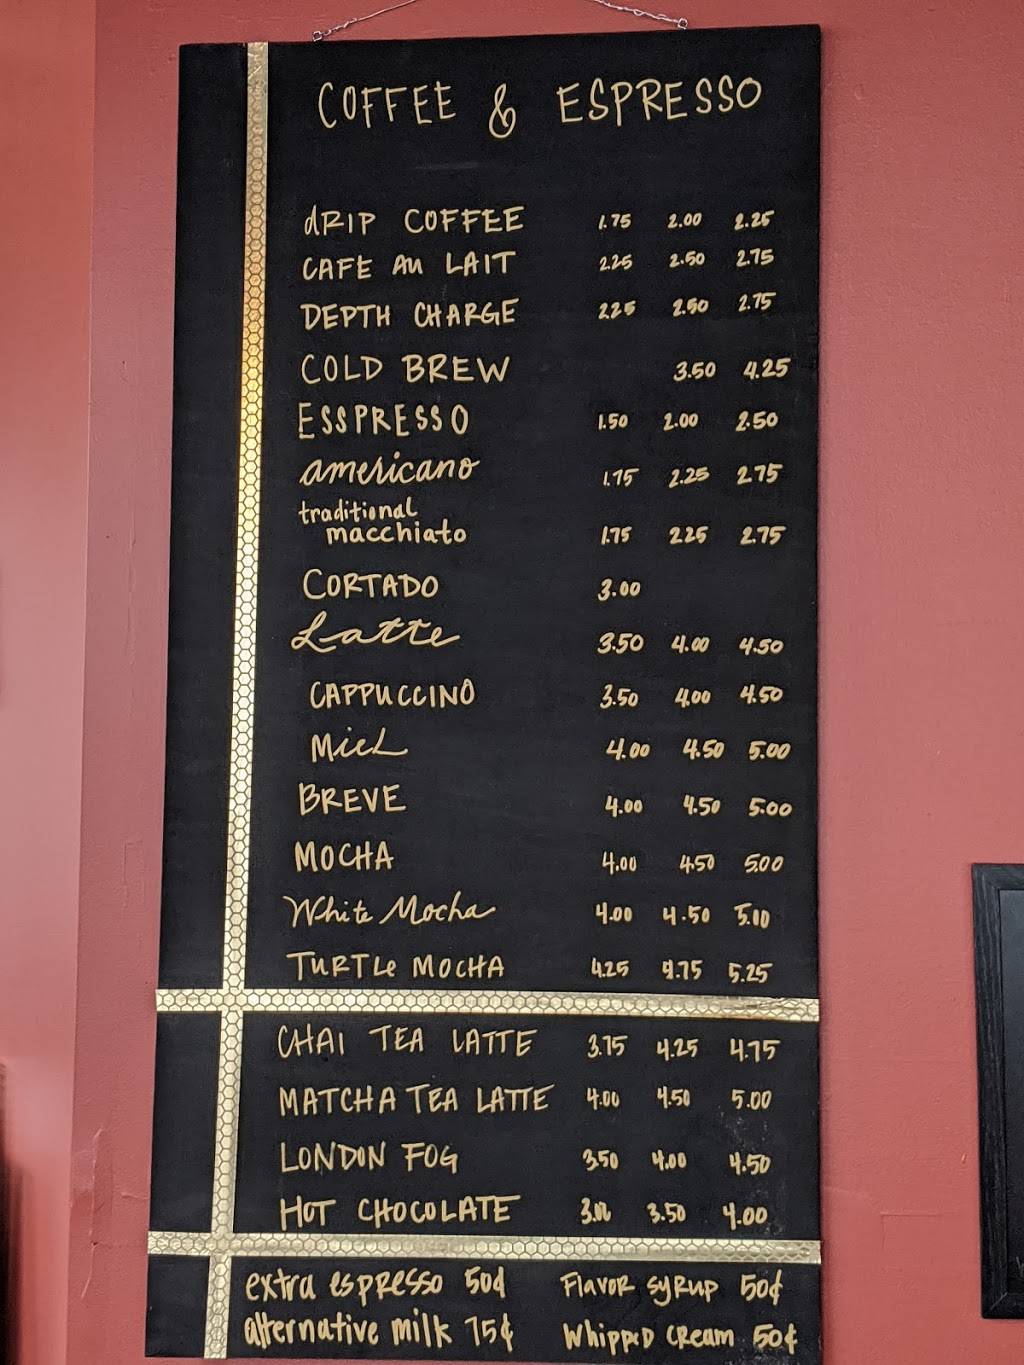 COFFEE & ESPRESSO
dRIP COFFEE 1.75 2.00 2.25
CAFE AU LAIT 2.25 2.50 2.75
DEPTH CHARGE 2.25 2.50 2.75
COLD BREW 3.50 4.25
ESSPRESSO 1.50 2.00 2.50
americano 1.75 2.25 2.75
traditional
macchiato 1.75 2.25 2.75
CORTADO 3.00
Latte 3.50 4.00 4.50
CAPPUCCINO 3.50 4.00 4.50
MieL 4.00 4.50 5.00
BREVE 4.00 4.50 5.00
MOCHA 4.00 4.50 5.00
White Mocha 4.00 4.50 5.00
TURTLe MOCHA 4.25 4.75 5.25
CHAI TEA LATTE 3.75 4.25 4.75
MATCHA TEA LATTE 4.00 4.50 5.00
LONDON FOG 3.50 4.00 4.50
HOT CHOCOLATE 3.00 3.50 4.00
extra espresso 50¢ FlavoR syRup 50¢
alternative milk 75¢ WhippeD cReam 50¢